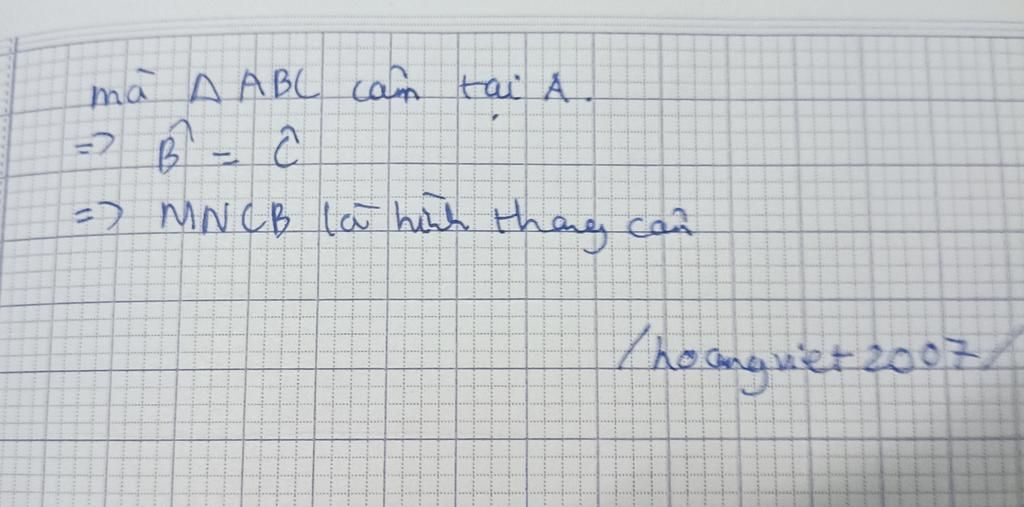 mà Δ ABC cân tại A.
=> B̂ = Ĉ
=> MNCB là hình thang cân
/hoangviet2007/